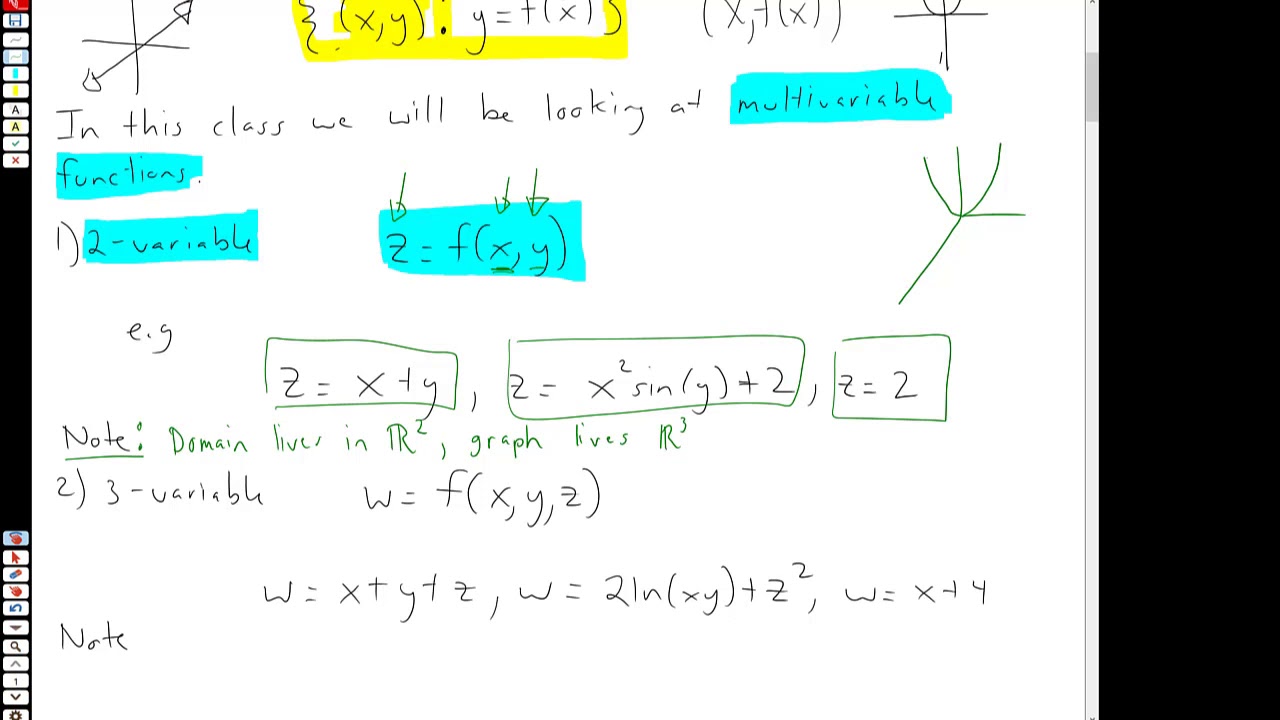 { (x,y) : y = f(x) } (x, f(x))
In this class we will be looking at multivariable
functions.
1) 2-variable z = f(x, y)
e.g
z = x + y , z = x² sin(y) + 2 , z = 2
Note: Domain lives in ℝ², graph lives ℝ³
2) 3-variable w = f(x, y, z)
w = x + y + z , w = 2ln(xy) + z² , w = x + 4
Note